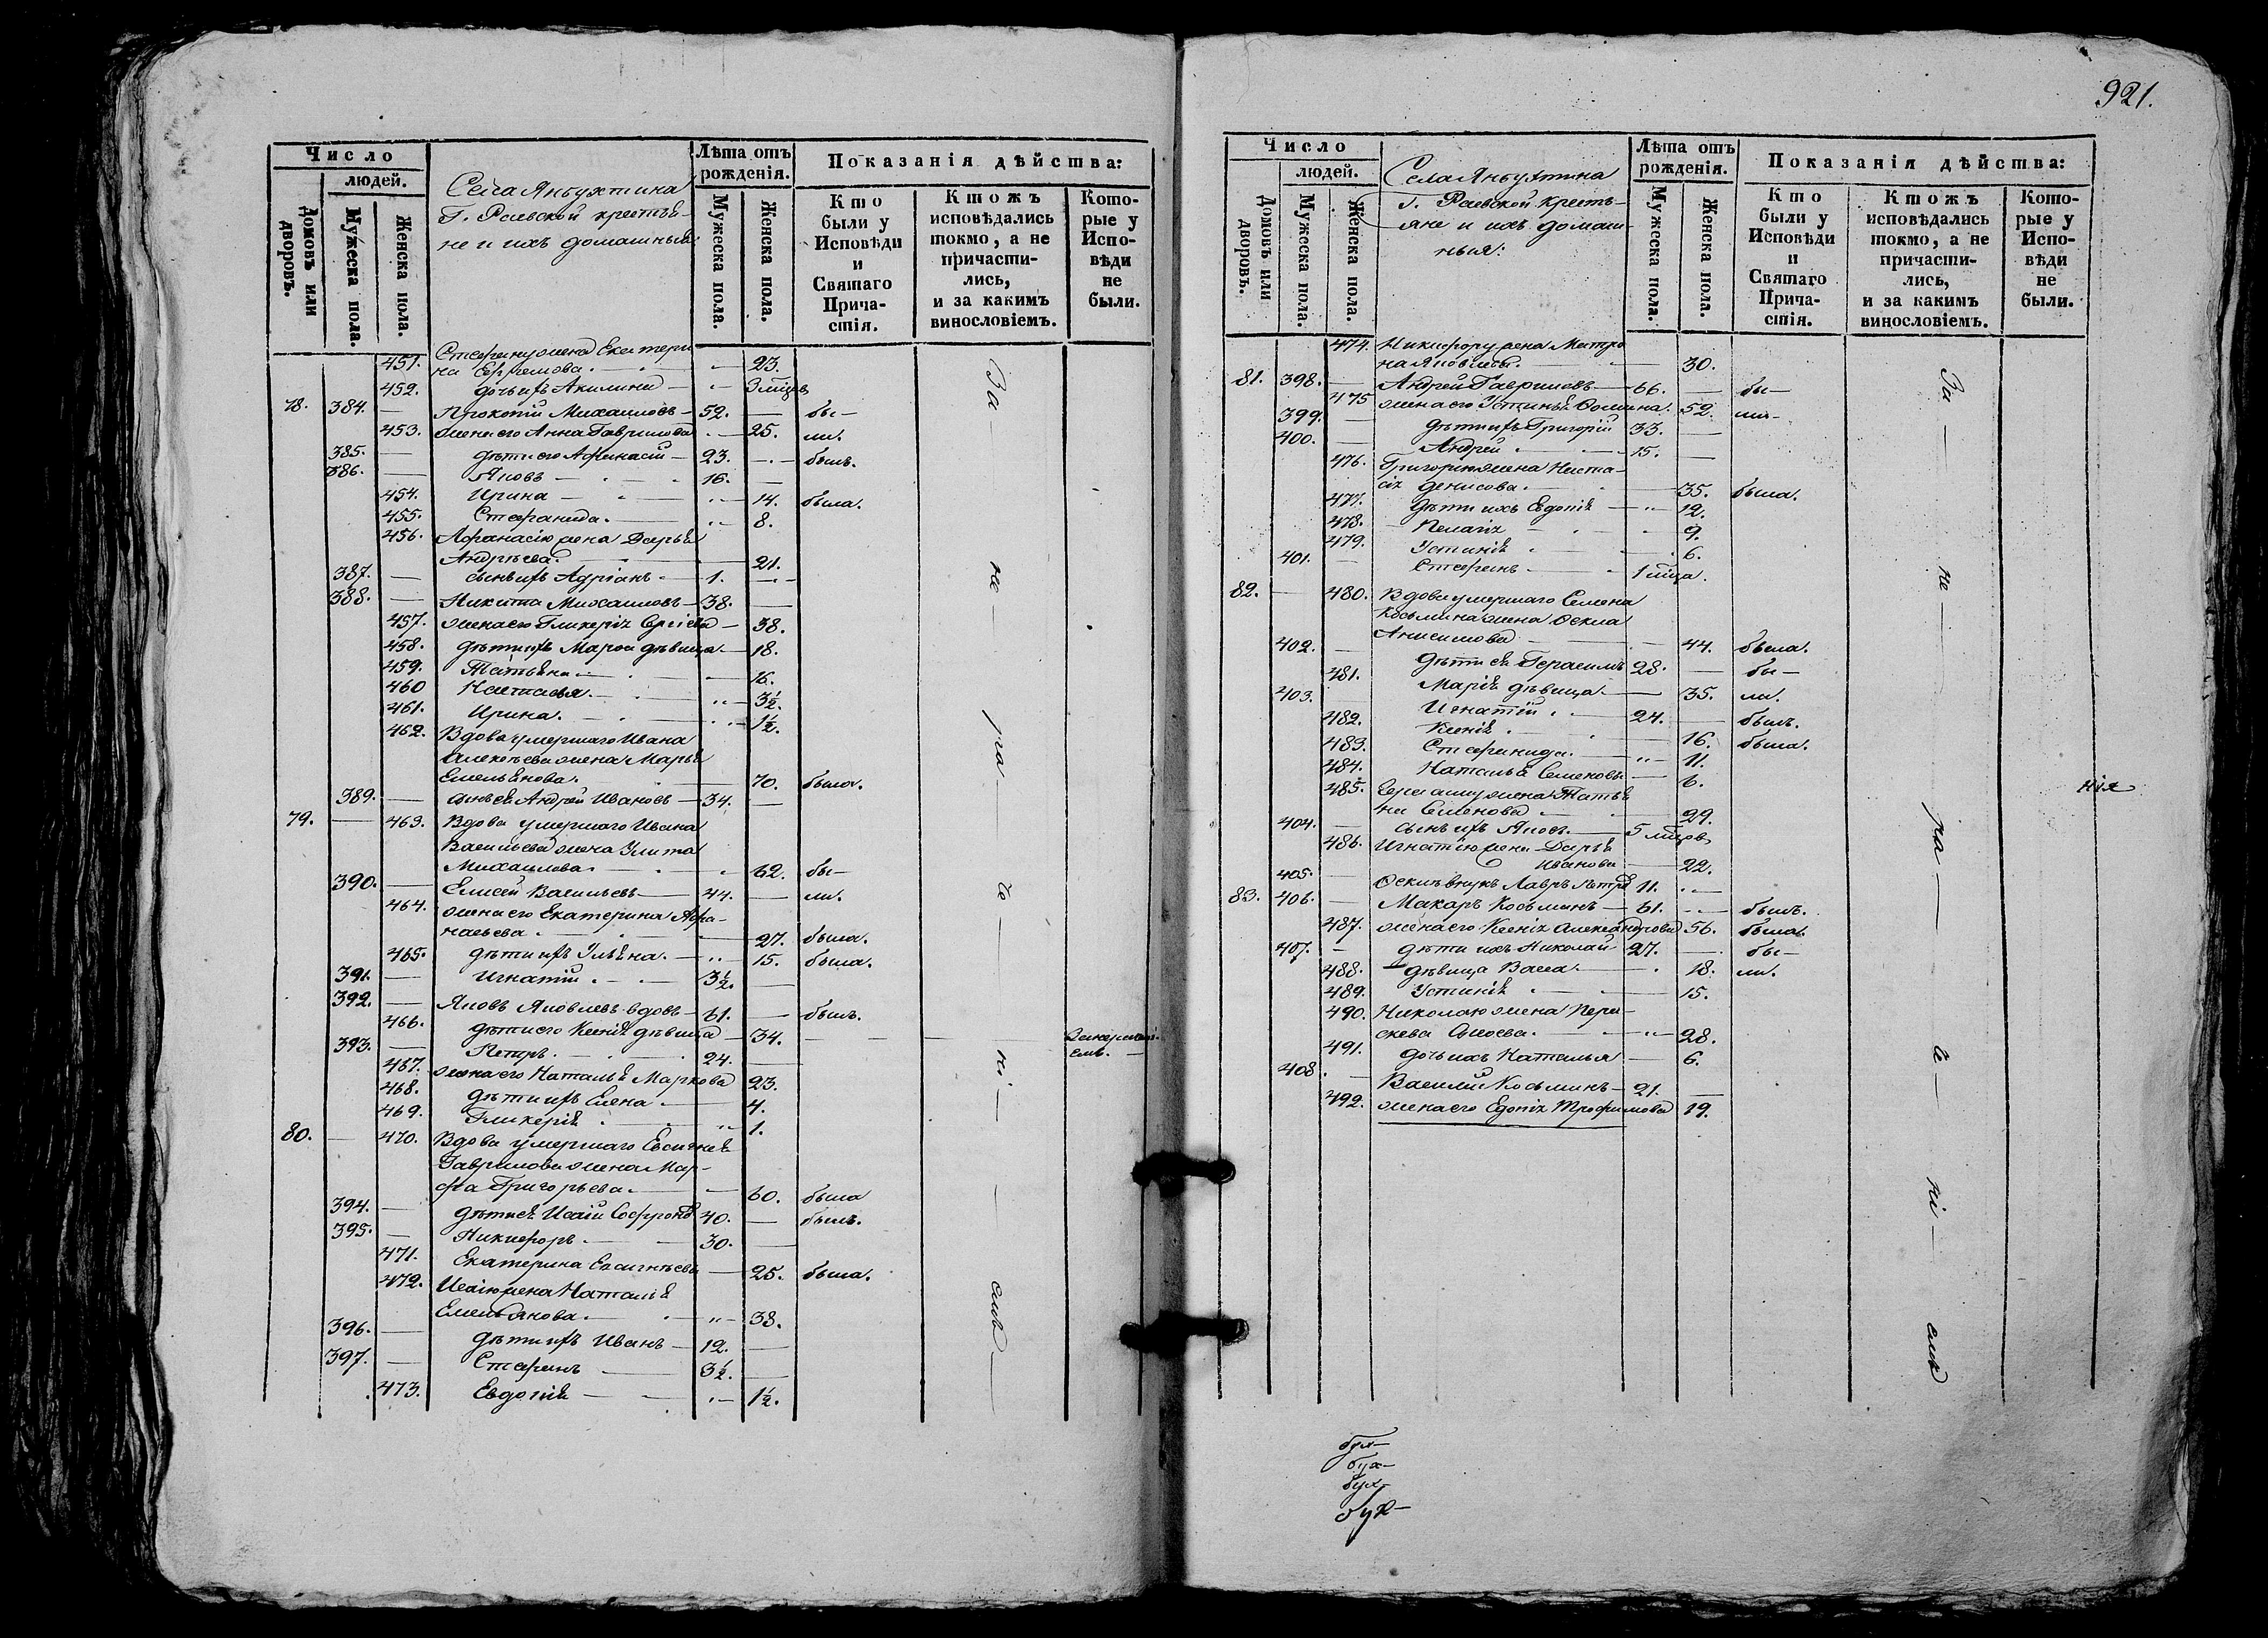 921.
Число
людей.
Домовъ или дворовъ.
Мужеска пола.
Женска пола.
Села Янбухтина
Г. Раевской крестья-
не и ихъ домашныя
Лѣта отъ рожденія.
Мужеска пола.
Женска пола.
Показанія дѣйства:
Кто были у Исповѣди и Святаго Прича-стія.
Ктожъ исповѣдались токмо, а не причасти-лись, и за какимъ винословіемъ.
Кото-рые у Испо-вѣди не были.
451. Стефану жена Екатери
на Ефремова. 23.
452. дочь ихъ Акилина 3 мѣца
78. 384. Прокопій Михаиловъ 52. бы-
453. жена его Анна Гаврилова 25. ли.
385. дѣти его Афанасій 23. былъ.
386. Яковъ 16.
454. Ирина 14. была.
455. Стефанида. 8.
456. Афанасію жена Дарья
Андрѣева. 21.
387. сынъ ихъ Адріанъ 1.
388. Никита Михаиловъ 38.
457. жена его Гликерія Сергіева 38.
458. дѣти ихъ Марѳа дѣвица 18.
459. Татьяна 16.
460 Настасья. 3½.
461. Ирина. 1½.
462. Вдова умершаго Ивана
Алексѣева жена Марья
Емельянова. 70. была.
389. сынъ ея Андрей Ивановъ 34.
79. 463. Вдова умершаго Ивана
Васильева жена Улита
Михаилова. 62. бы-
390. Елисей Васильевъ 44. ли.
464. жена его Екатерина Афа-
насьева. 27. была.
465. дѣти ихъ Ульяна. 15. была.
391. Игнатій 3½.
392. Яковъ Яковлевъ вдовъ 61. былъ.
466. дѣти его Ксенія дѣвица 34.
393. Петръ. 24.
467. жена его Наталья Маркова 23.
468. дѣти ихъ Елена 4.
469. Гликерія 1.
80. 470. Вдова умершаго Евсигнея
Гаврилова жена Мар-
фа Григорьева. 60. была
394. дѣти ея Исаій Софроновъ 40. былъ.
395. Никифоръ 30.
471. Екатерина Евсигнѣева 25. была.
472. Исаію жена Наталья
Емельянова. 38.
396. дѣти ихъ Иванъ 12.
397. Стефанъ 3½.
473. Евдокія 1½.
За - не - ра - че - ні - емъ
Число
людей.
Домовъ или дворовъ.
Мужеска пола.
Женска пола.
Села Янбухтина
Г. Раевской кресть-
яне и ихъ домаш-
ныя:
Лѣта отъ рожденія.
Мужеска пола.
Женска пола.
Показанія дѣйства:
Кто были у Исповѣди и Святаго Прича-стія.
Ктожъ исповѣдались токмо, а не причасти-лись, и за какимъ винословіемъ.
Кото-рые у Испо-вѣди не были.
474. Никифору жена Матро
на Яковлева. 30.
81. 398. Андрей Гавриловъ 66. бы-
475 жена его Устинья Фомина. 52. ли-
399. дѣти ихъ Григорій 33.
400. Андрей 15.
476. Григорію жена Наста-
сія Денисова. 35. была.
477. дѣти ихъ Евдокія 12.
478. Пелагія 9.
479. Устинія 6.
401. Стефанъ 1 мѣца.
82. 480. Вдова умершаго Семена
Косьмина жена Ѳекла
Анисимова 44. была.
402. дѣти ея Герасимъ 28. бы-
481. Марія дѣвица 35. ли.
403. Игнатій 24. былъ.
482. Ксенія 16. была.
483. Стефанида. 11.
484. Наталья Семенова 6.
485. Герасиму жена Татья
на Семенова 29.
404. сынъ ихъ Яковъ. 5 мѣцовъ
486. Игнатію жена Дарья
Иванова 22.
405. Ѳеклѣ внукъ Лавръ Петровъ 11.
83. 406. Макаръ Косьминъ 61. былъ.
487. жена его Ксенія Александрова 56. была.
407. дѣти ихъ Николай 27. бы-
488. дѣвица Васса 18. ли.
489. Устинія 15.
490. Николаю жена Пара-
скева Сысоева. 28.
491. дочь ихъ Наталья 6.
408. Василій Косьминъ 21.
492. жена его Едокія Трофимова 19.
За - не - ра - че - ні - емъ
нія
бух-
бух-
бух-
бух-